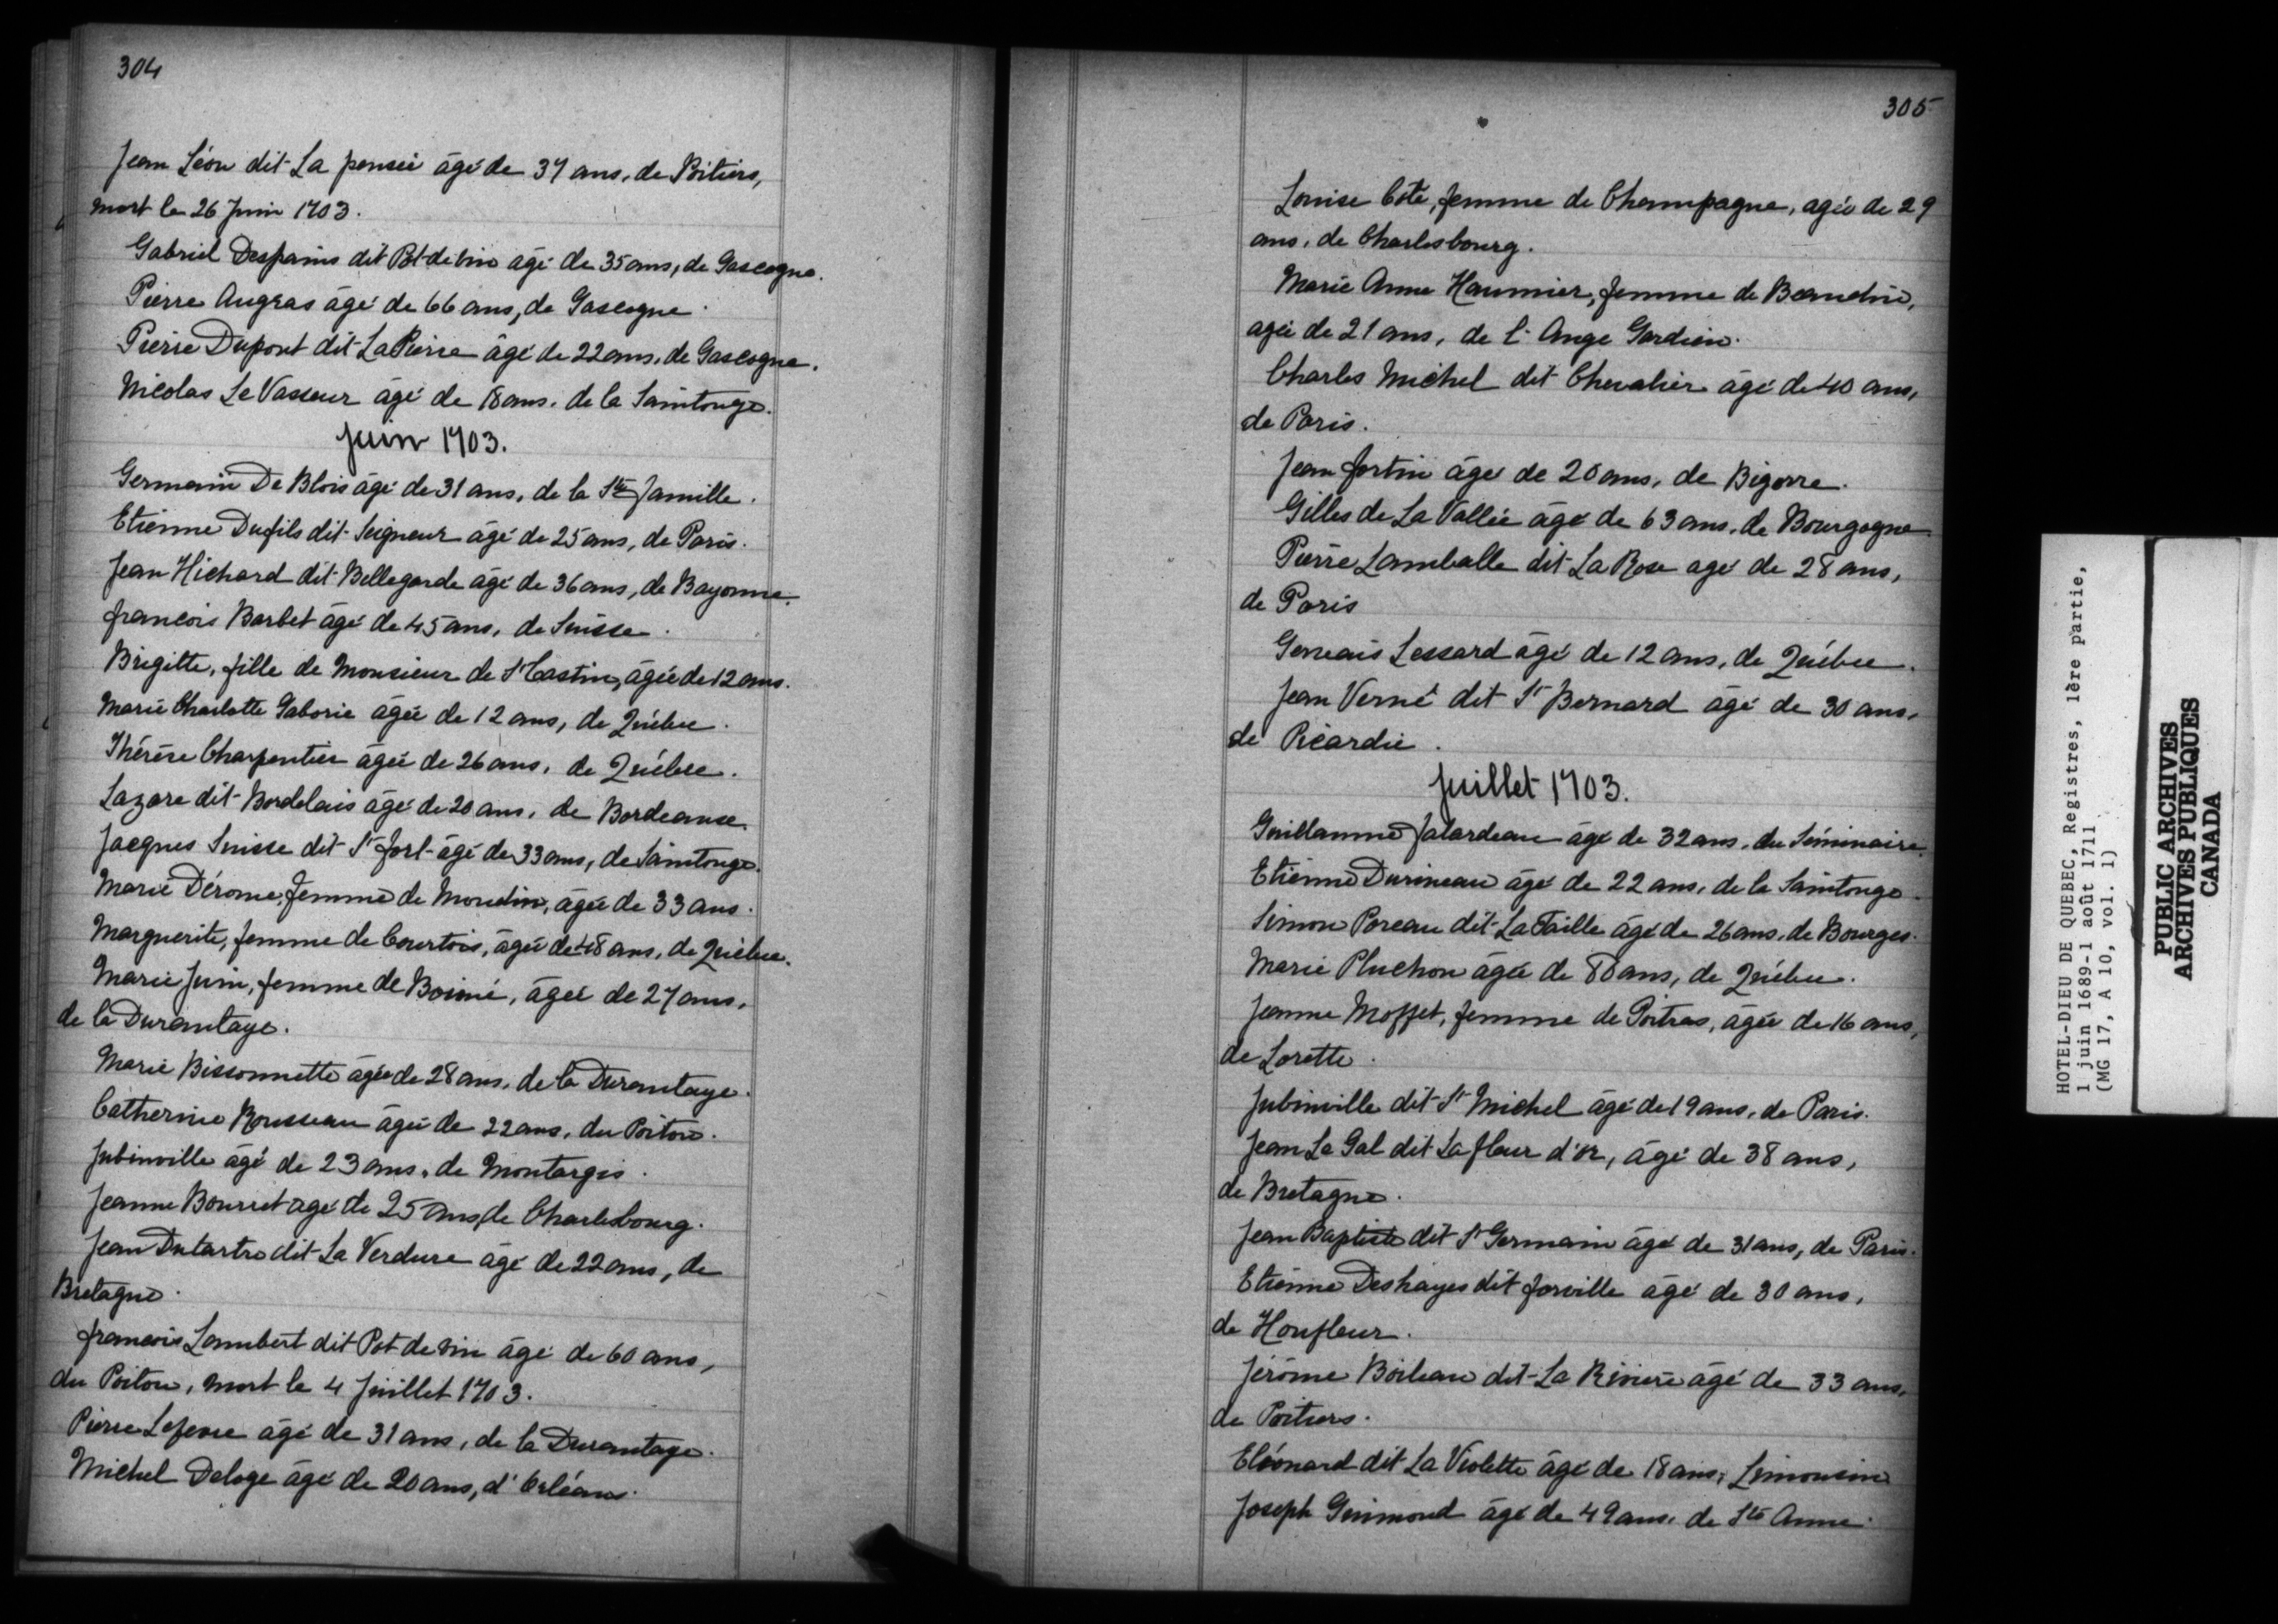 304
Jean Léon dit La pensée âgé de 37 ans, de Poitiers,
mort le 26 Juin 1703.
Gabriel Despains dit Pot de vin âgé de 35 ans, de Gascogne.
Pierre Augras âgé de 66 ans, de Gascogne.
Pierre Dupont dit La Pierre âgé de 22 ans, de Gascogne.
Nicolas Le Vasseur âgé de 18 ans, de la Saintonge.
Juin 1703.
Germain De Blois âgé de 31 ans, de la Ste famille.
Etienne Dufils dit Seigneur âgé de 25 ans, de Paris.
Jean Hichard dit Bellegarde âgé de 36 ans, de Bayonne.
francois Barbet âgé de 45 ans, de Suisse.
Brigitte, fille de Monsieur de St Castin, âgée de 12 ans.
Marie Charlotte Gaborie âgée de 12 ans, de Québec.
Thérèse Charpentier âgée de 26 ans, de Québec.
Lazare dit Bordelais âgé de 20 ans, de Bordeaux.
Jacques Suisse dit St fort âgé de 33 ans, de Saintonge.
Marie Dérome, femme de Moudin, âgée de 33 ans.
Marguerite, femme de Courtois, âgée de 48 ans, de Québec.
Marie Juin, femme de Boimé, âgée de 27 ans,
de la Durantaye.
Marie Bissonnette âgée de 28 ans, de la Durantaye.
Catherine Rousseau âgée de 22 ans, du Poitou.
Jubinville âgé de 23 ans, de Montargis.
Jeanne Bourret agé de 25 ans, de Charlesbourg.
Jean Dutartre dit La Verdure âgé de 22 ans, de
Bretagne.
francois Lambert dit Pot de vin âgé de 60 ans,
du Poitou, mort le 4 Juillet 1703.
Pierre Lefevre âgé de 31 ans, de la Durantaye.
Michel Deloge âgé de 20 ans, d'Orléans.
305
Louise Coté, femme de Champagne, agée de 29
ans, de Charlesbourg.
Marie Anne Haumier, femme de Beaudin,
agée de 21 ans, de l'Ange Gardien.
Charles Michel dit Chevalier âgé de 40 ans,
de Paris.
Jean fortin âgé de 20 ans, de Bigorre.
Gilles de La Vallée âgé de 63 ans, de Bourgogne
Pierre Lamballe dit La Rose agé de 28 ans,
de Paris
Gervais Lessard âgé de 12 ans, de Québec.
Jean Verné dit St Bernard âgé de 30 ans,
de Picardie.
Juillet 1703.
Guillaume falardeau âgé de 32 ans, du Séminaire.
Etienne Durineau âgé de 22 ans, de la Saintonge.
Simon Poreau dit La Taille âgé de 26 ans, de Bourges.
Marie Pluchon âgée de 80 ans, de Québec.
Jeanne Moffet, femme de Poitras, âgée de 16 ans,
de Lorette.
Jubinville dit St Michel âgé de 19 ans, de Paris.
Jean Le Gal dit La fleur d'or, âgé de 38 ans,
de Bretagne.
Jean Baptiste dit St Germain âgé de 31 ans, de Paris.
Etienne Deshayes dit forville âgé de 30 ans,
de Honfleur.
Jérôme Boileau dit La Rivière âgé de 33 ans,
de Poitiers.
Eléonard dit La Violette âgé de 18 ans, Limousin
Joseph Guimond âgé de 49 ans, de Ste Anne.
HOTEL-DIEU DE QUEBEC, Registres, 1ère partie,
1 juin 1689-1 août 1711
(MG 17, A 10, vol. 1)
PUBLIC ARCHIVES
ARCHIVES PUBLIQUES
CANADA